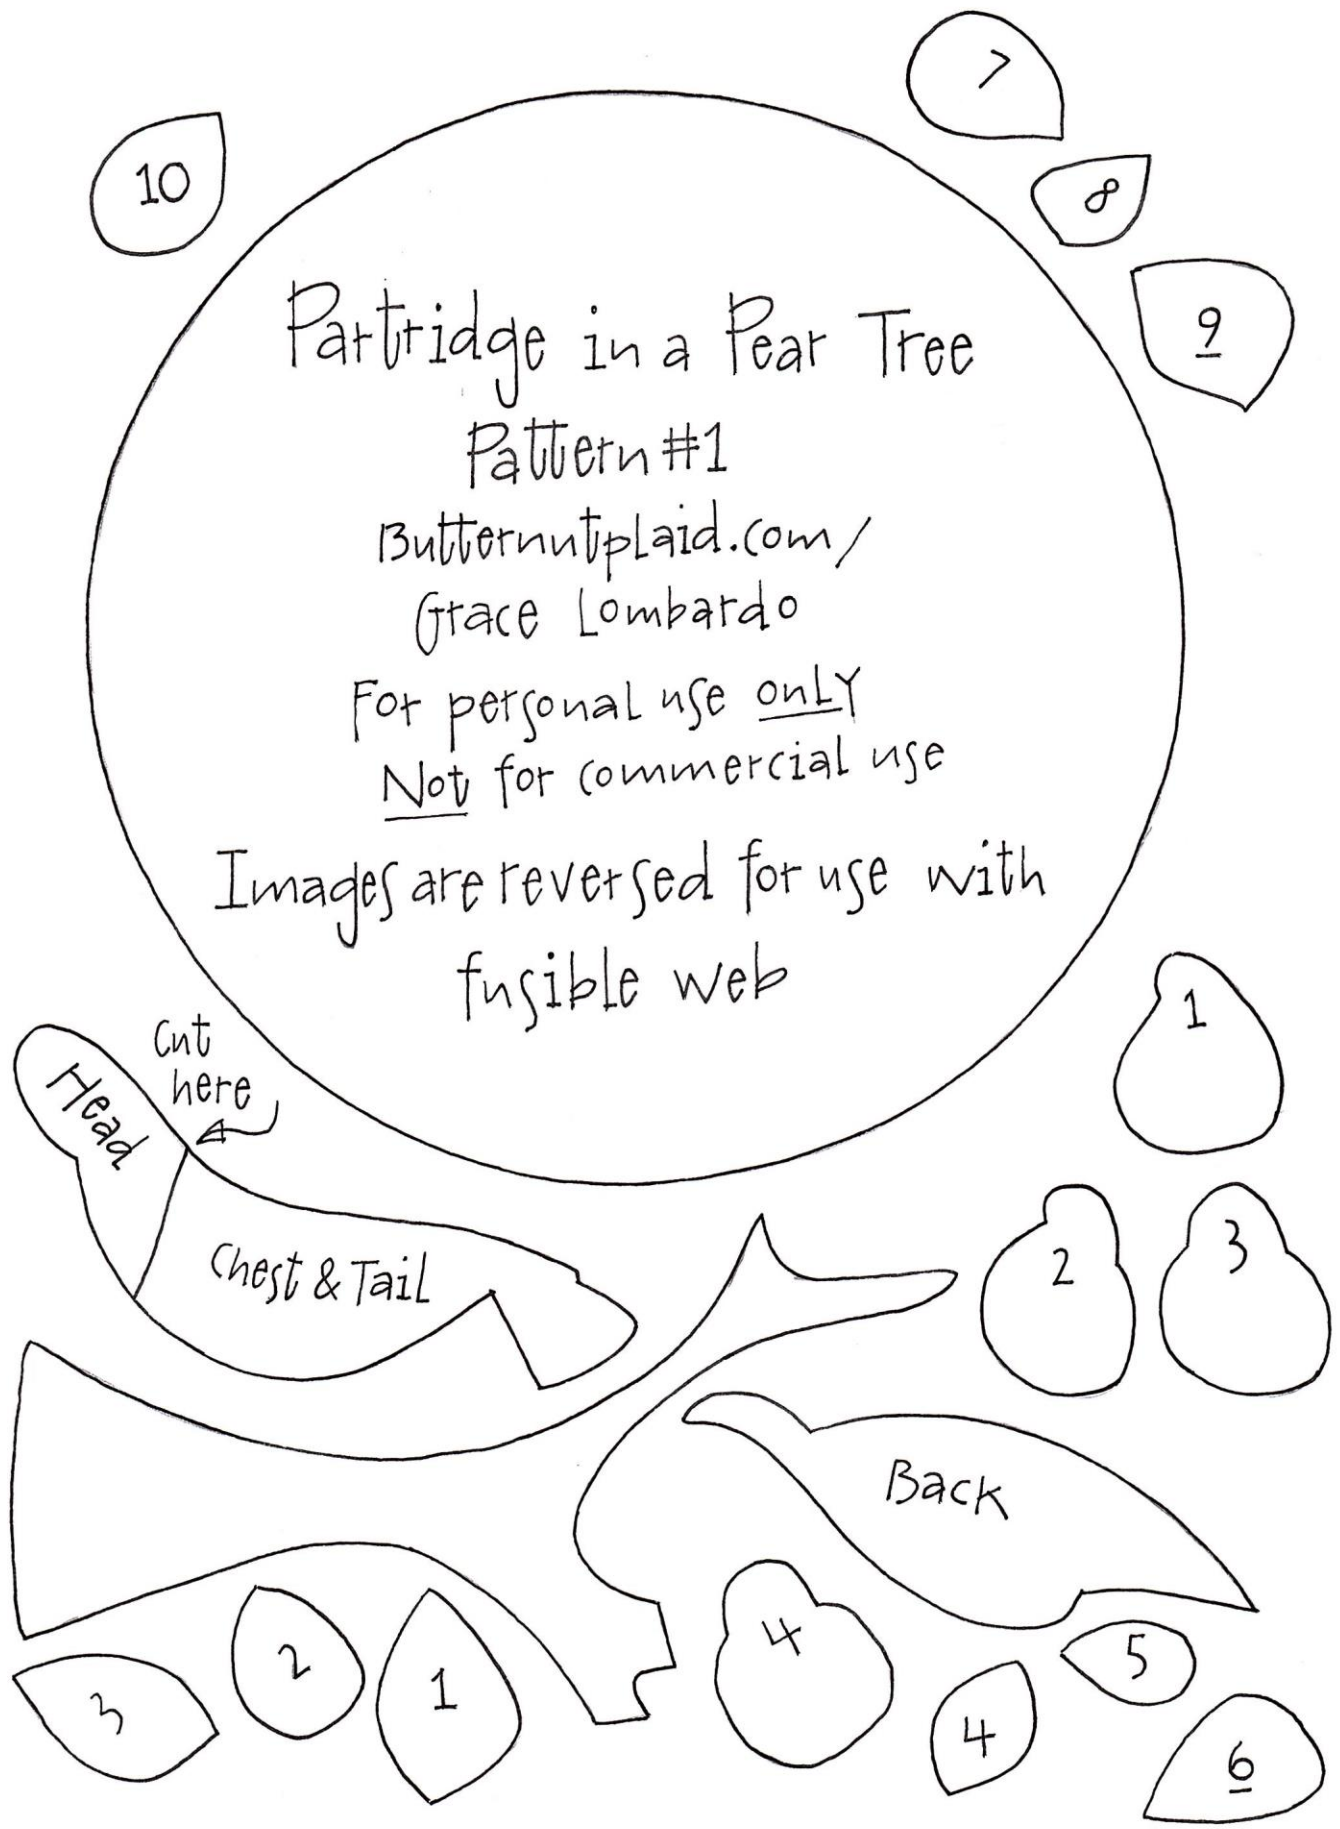 7
10
8
9
Partridge in a Pear Tree
Pattern #1
Butternutplaid.com/
Grace Lombardo
For personal use only
Not for commercial use
Images are reversed for use with
fusible web
1
Cut
here
Head
2
3
Chest & Tail
Back
4
5
2
1
3
4
6